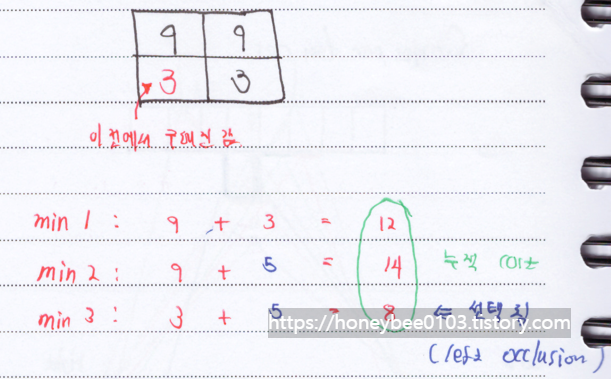 9 9
3 3
이전에서 구해진 값
min 1 : 9 + 3 = 12
min 2 : 9 + 5 = 14 누적 cost
min 3 : 3 + 5 = 8 ⇐ 선택됨
https://honeybee0103.tistory.com
(left occlusion)